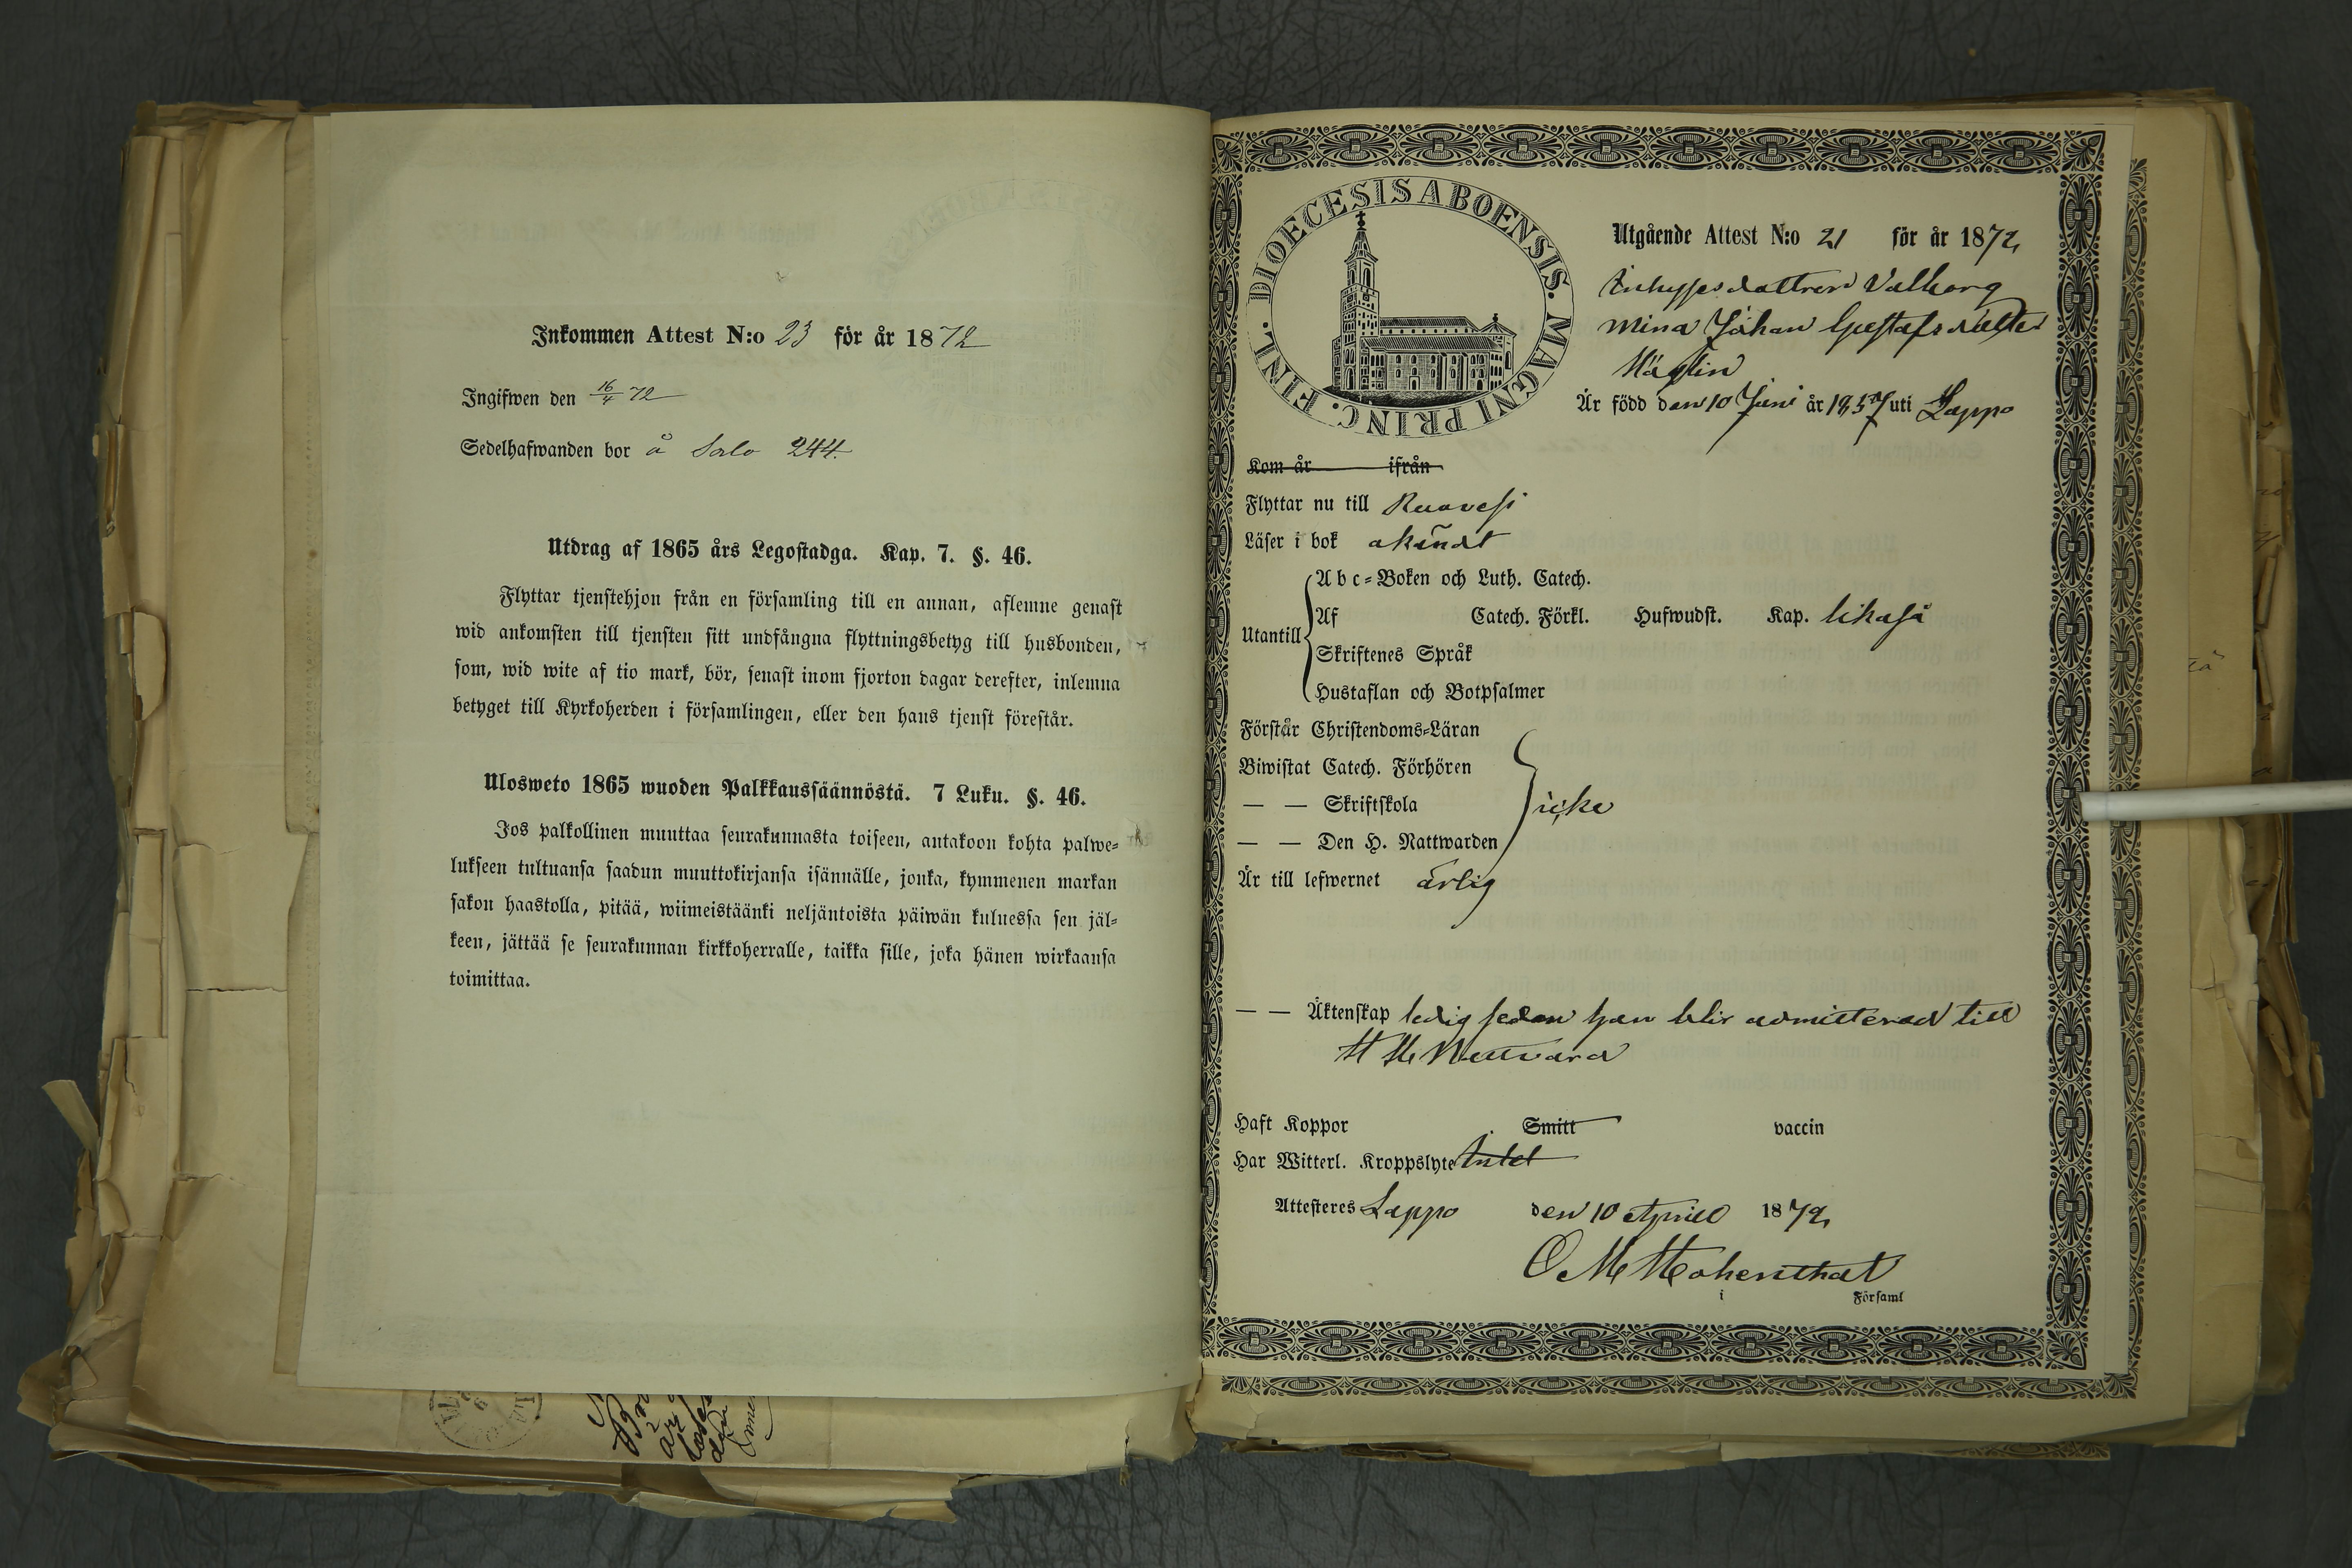 Inkommen Attest N:o 23 för år 1872
Ingifwen den 16/4 72
Sedelhafwanden bor å Salo 244.
Utdrag af 1865 års Legostadga. Kap. 7. §. 46.
Flyttar tjenstehjon från en församling till en annan, aflemne genast
wid ankomsten till tjensten sitt undfångna flyttningsbetyg till husbonden,
som, wid wite af tio mark, bör, senast inom fjorton dagar derefter, inlemna
betyget till Kyrkoherden i församlingen, eller den hans tjenst förestår.
Ulosweto 1865 wuoden Palkkaussäännöstä. 7 Luku. §. 46.
Jos palkollinen muuttaa seurakunnasta toiseen, antakoon kohta palwe-
lukseen tultuansa saadun muuttokirjansa isännälle, jonka, kymmenen markan
sakon haastolla, pitää, wiimeistäänki neljäntoista päiwän kuluessa sen jäl-
keen, jättää se seurakunnan kirkkoherralle, taikka sille, joka hänen wirkaansa
toimittaa.
DIOECESIS ABOENSIS. MAGNI PRINC. FINL.
Utgående Attest N:o 21 för år 1872,
Inhysesdattren Valborg
Mina Johan Gustafsdatter
Är född den 10 Juni år 1857 uti Lappo
Kom år ifrån
Flyttar nu till Ruovesi
Läser i bok okändt
Utantill
Abc-Boken och Luth. Catech.
Af Catech. Förkl. Hufwudst. Kap. likaså
Skriftenes Språk
Hustaflan och Botpsalmer
Förstår Christendoms-Läran
Biwistat Catech. Förhören
— — Skriftskola icke
— — Den H. Nattwarden
Är till lefwernet ärlig
— — Äktenskap ledig sedan hon blir admitterad till
H. H. Nattvard
Haft Koppor Smitt vaccin
Har Witterl. Kroppslyte Intet
Attesteres Lappo den 10 April 1872,
i Församl